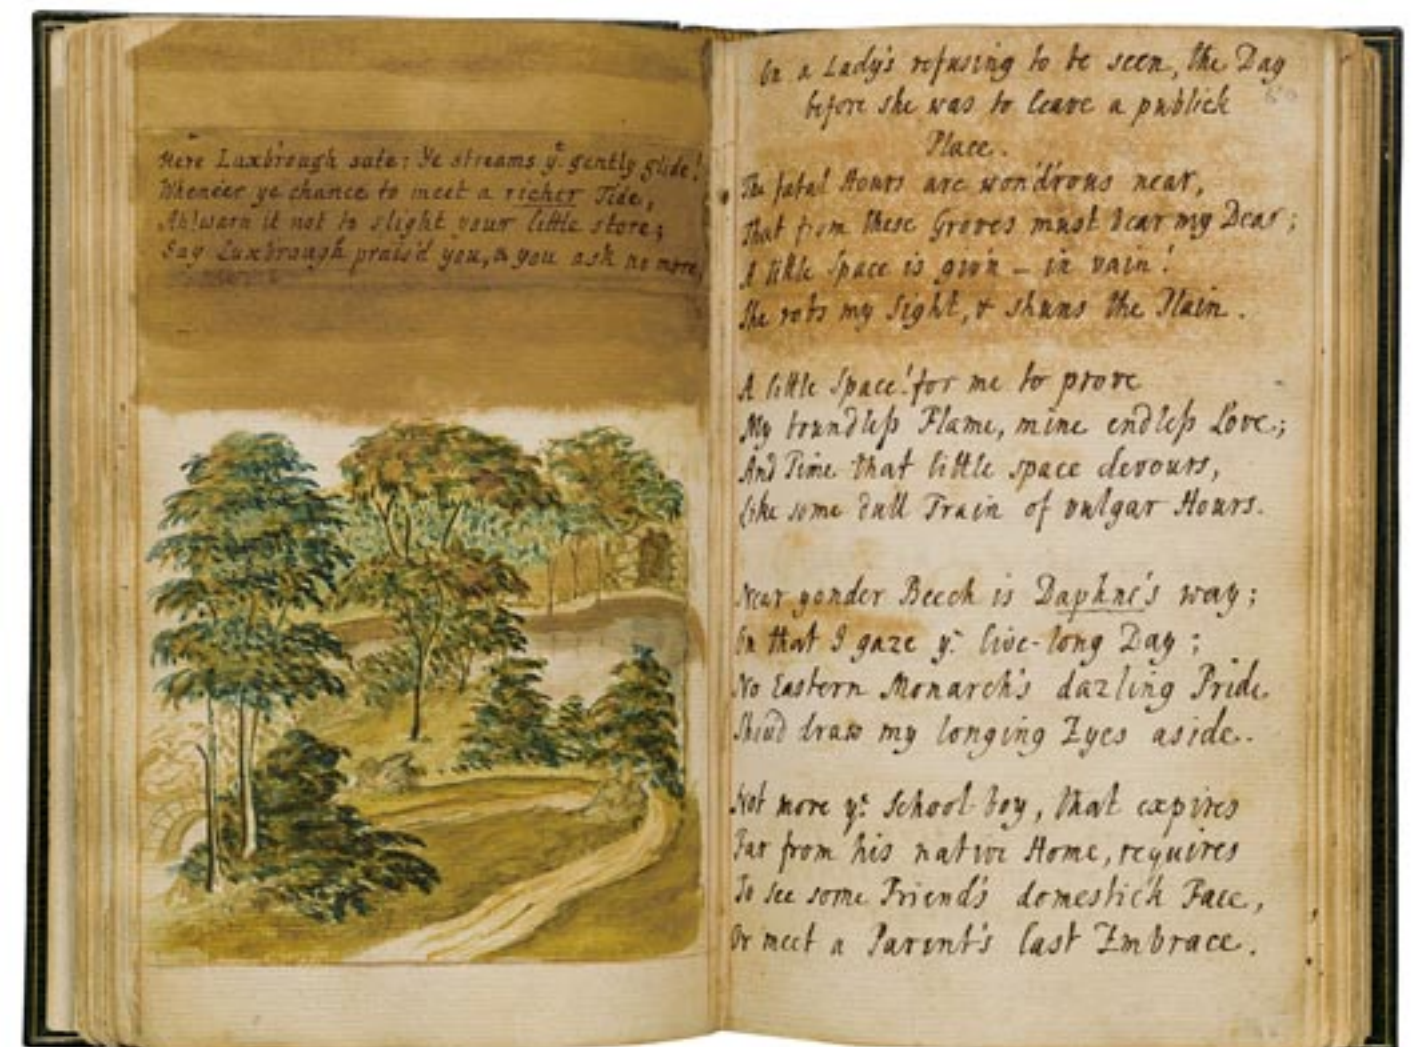 Here Luxbrough sate: Ye streams yt. gently glide!
Whene'er ye chance to meet a richer Tide,
Ah! warn it not to slight your little store;
Say Luxbrough prais'd you, & you ask no more.
On a Lady's refusing to be seen, the Day
before she was to leave a publick
Place.
The fatal Hours are wond'rous near,
That from these Groves must bear my Dear;
A little Space is giv'n – in vain!
She robs my Sight, & shuns the Plain.
A little Space! for me to prove
My boundless Flame, mine endless Love;
And Time that little space devours,
Like some dull Train of vulgar Hours.
Near yonder Beech is Daphne's way;
On that I gaze ye. live-long Day;
No Eastern Monarch's dazling Pride
Shou'd draw my longing Eyes aside.
Not more ye. School-boy, that expires
Far from his native Home, requires
To see some Friend's domestick Face,
Or meet a Parent's last Embrace.